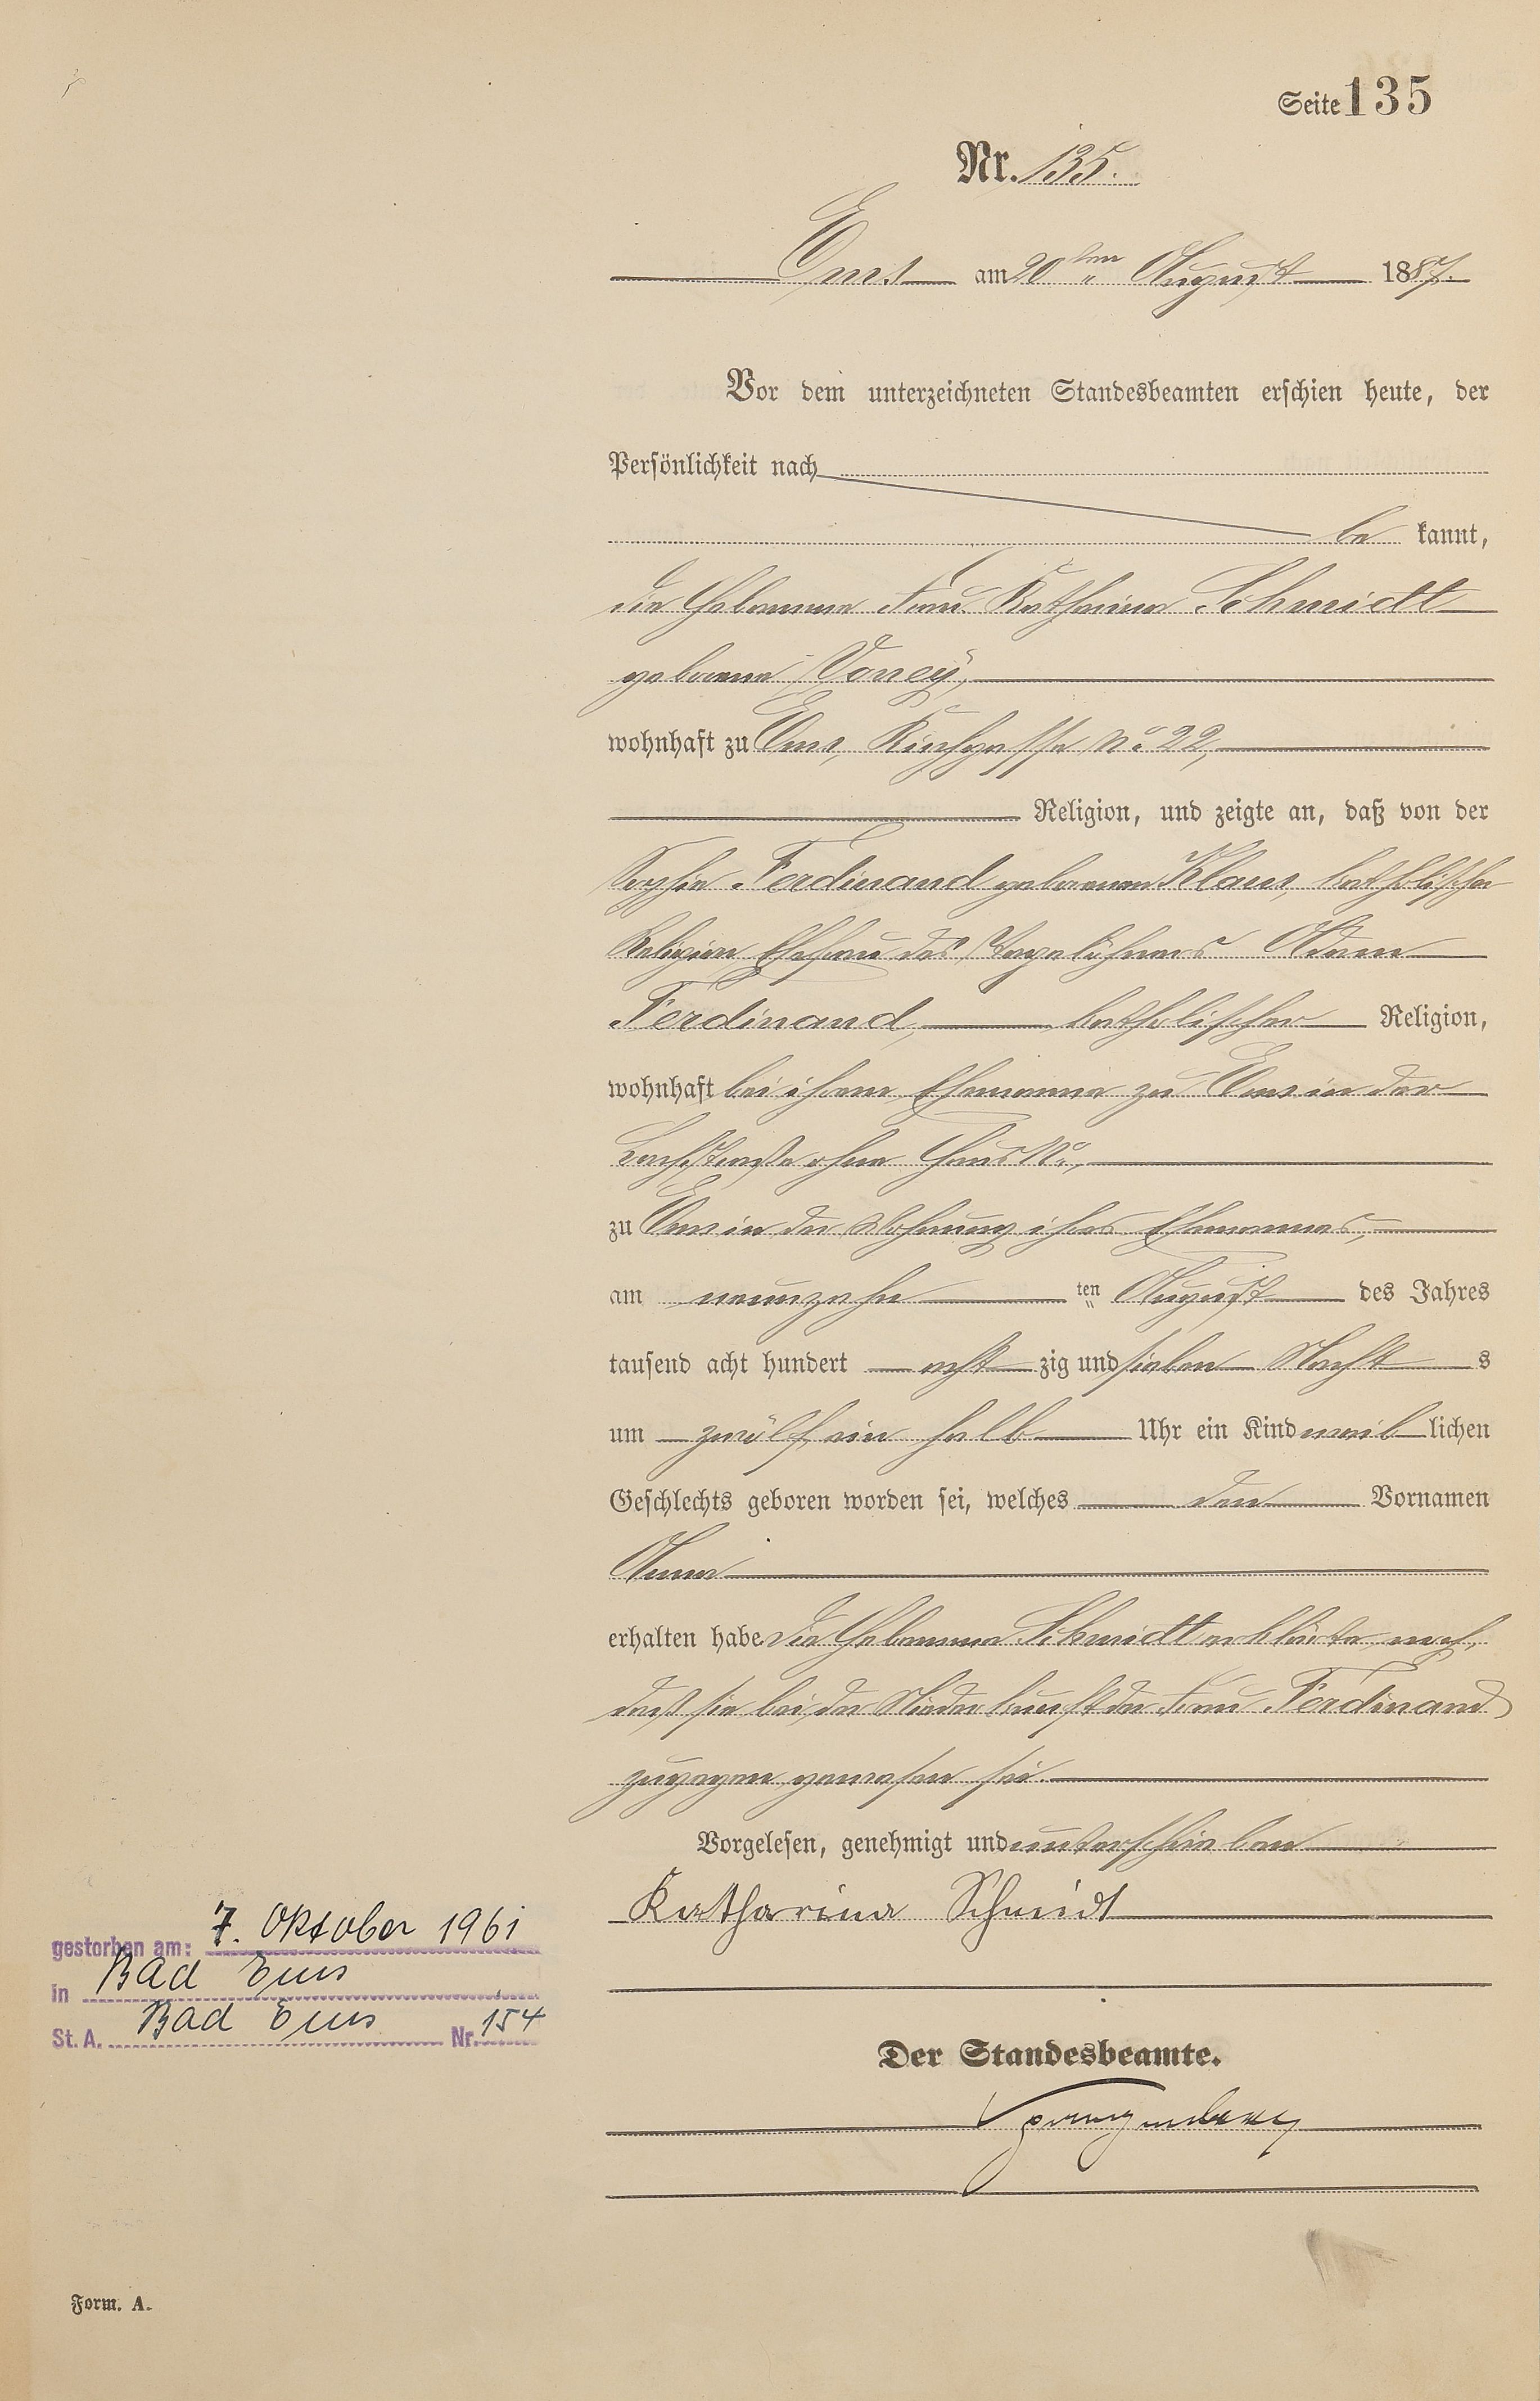 Seite 135
Nr. 135.
Ems am 20ten August 1887.
Vor dem unterzeichneten Standesbeamten erschien heute, der
Persönlichkeit nach
be kannt,
die Hebamme Frau Katharina Schmidt
geborene Voney,
wohnhaft zu Ems, Kirchgasse No 22,
Religion, und zeigte an, daß von der
Sophie Ferdinand geborenen Klaus, katholischer
Religion Ehefrau des Tagelöhners Adam
Ferdinand, katholischer Religion,
wohnhaft bei ihrem Ehemanne zu Ems in der
Bachstraße ohne Haus No,
zu Ems in der Wohnung ihres Ehemannes,
am neunzehn ten August des Jahres
tausend acht hundert acht zig und sieben Nacht s
um zwölf ein halb Uhr ein Kind weib lichen
Geschlechts geboren worden sei, welches den Vornamen
Anna
erhalten habe Die Hebamme Schmidt erklärte noch,
daß sie bei der Niederkunft der Frau Ferdinand
zugegen gewesen sei.
Vorgelesen, genehmigt und unterschrieben
Katharina Schmidt
Der Standesbeamte.
gestorben am: 7. Oktober 1961
in Bad Ems
St. A. Bad Ems Nr. 154
Form. A.